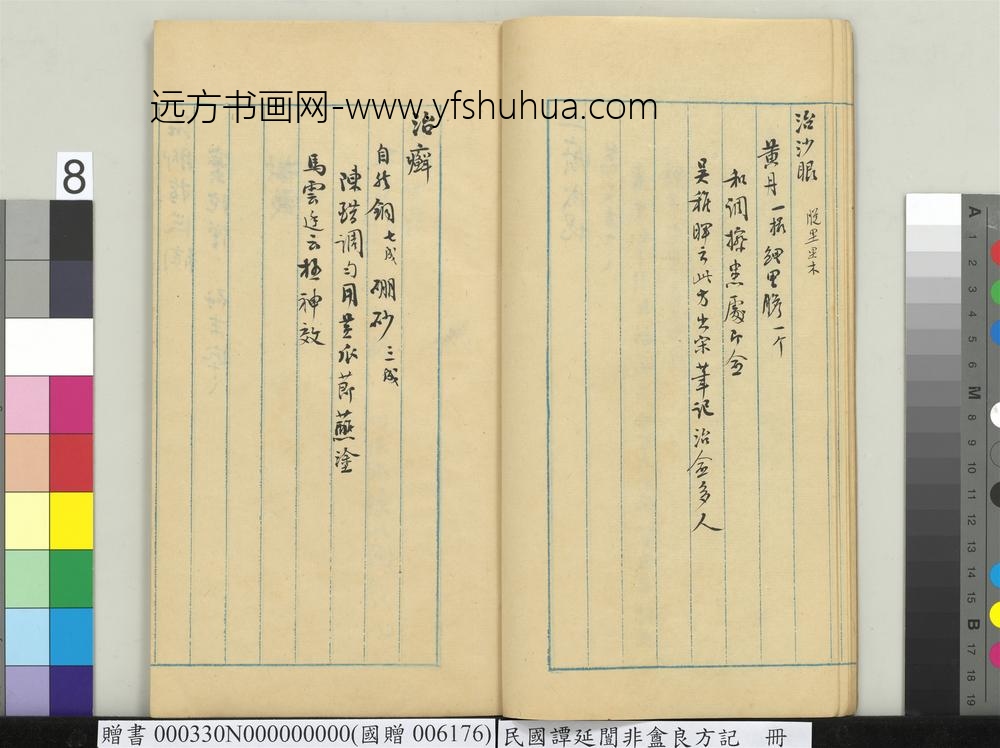 远方书画网-www.yfshuhua.com
治沙眼
黄丹一 鲤 胆一个
和调擦患處即愈
吳稚暉云此方出宋筆記治愈多人
治癬
自然銅七成硼砂三成
陳醋調勻用 蘸塗
馬雲 云極神效
8
A
1
2
3
4
5
6
M
8
9
10
11
12
13
14
15
B
17
18
19
贈書 000330N000000000(國贈 006176)
民國譚延闓非盦良方記 冊